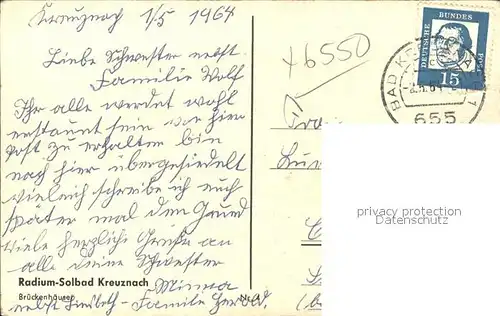 Kreuznach 1/5 1964
Liebe Schwester nebst
Familie Wolf
Ihr alle werdet wohl
erstaunt sein von hier
Post zu erhalten bin
nach hier übergesiedelt
vieleich schreibe ich euch
später mal den Grund
Viele herzliche Grüße an
alle deine Schwester
Minna
nebst Lisbeth - Familie Herold
Radium-Solbad Kreuznach
Brückenhäuser
+6550
DEUTSCHE BUNDES POST
15
BAD KREUZNACH 1
655
privacy protection
Datenschutz